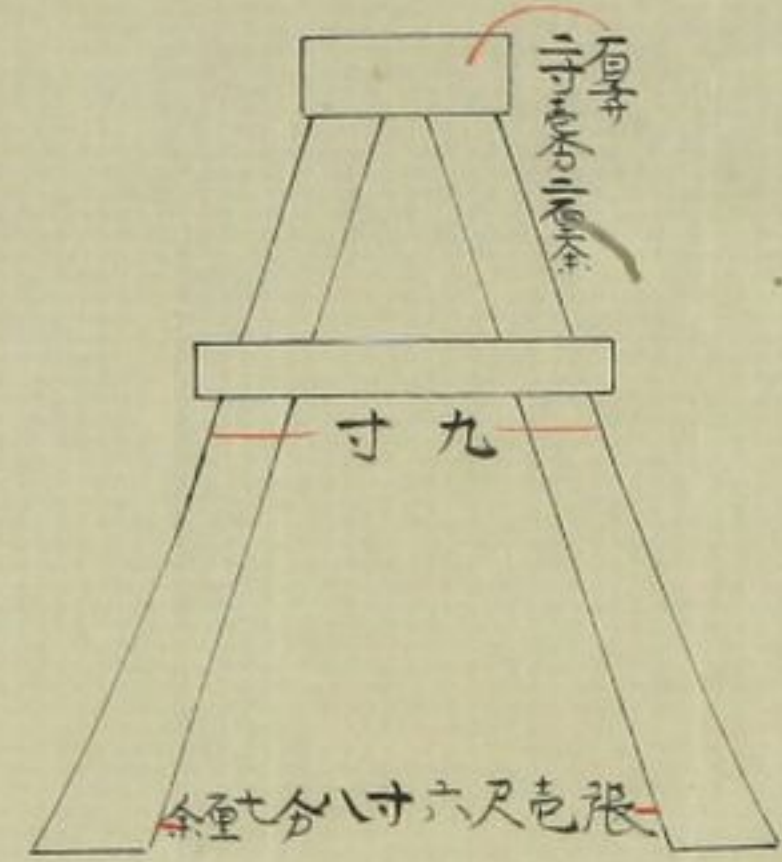 厚サ
二寸壱分二厘余
九寸
張壱尺六寸八分七厘余